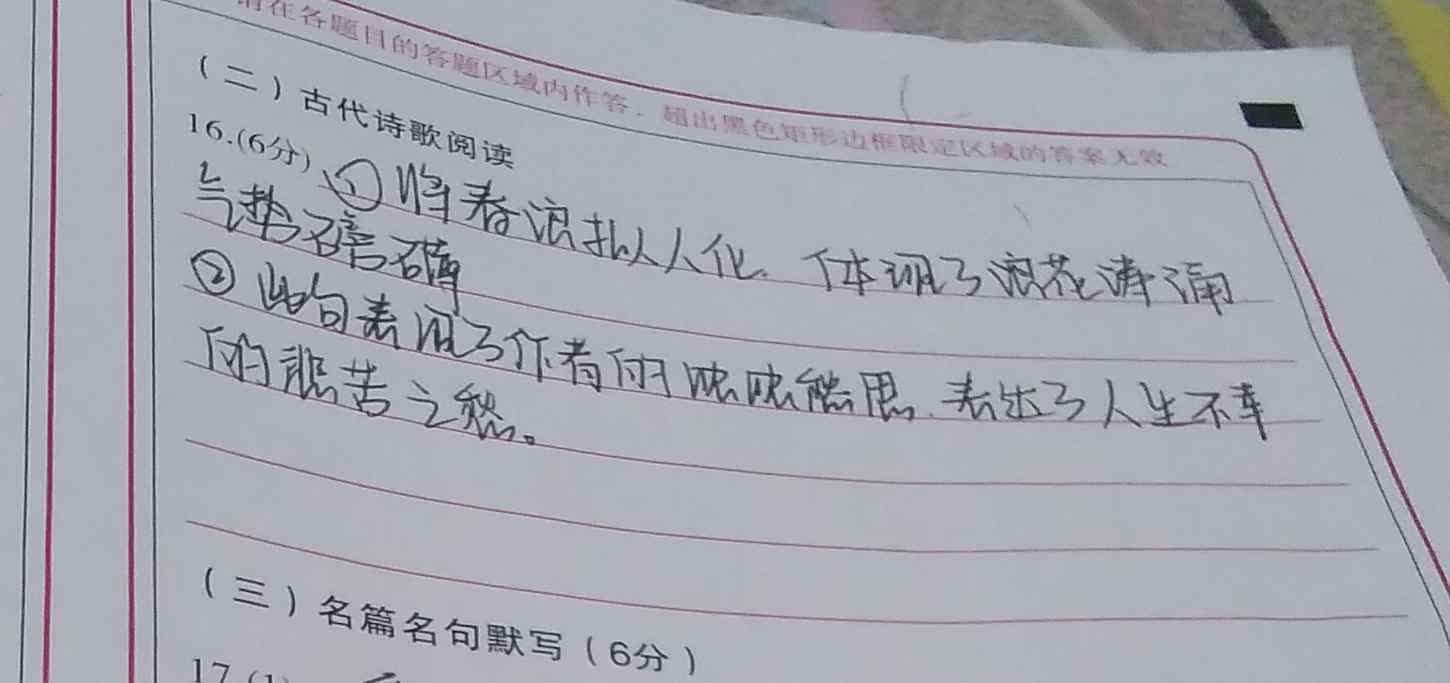 请在各题目的答题区域内作答，超出黑色矩形边框限定区域的答案无效
（二）古代诗歌阅读
16.(6分)
①将春浪拟人化、体现了浪花涛涌
气势磅礴
②此句表现了作者的 愁思、表达了人生不幸
的悲苦之愁。
（三）名篇名句默写（6分）
17.(1)